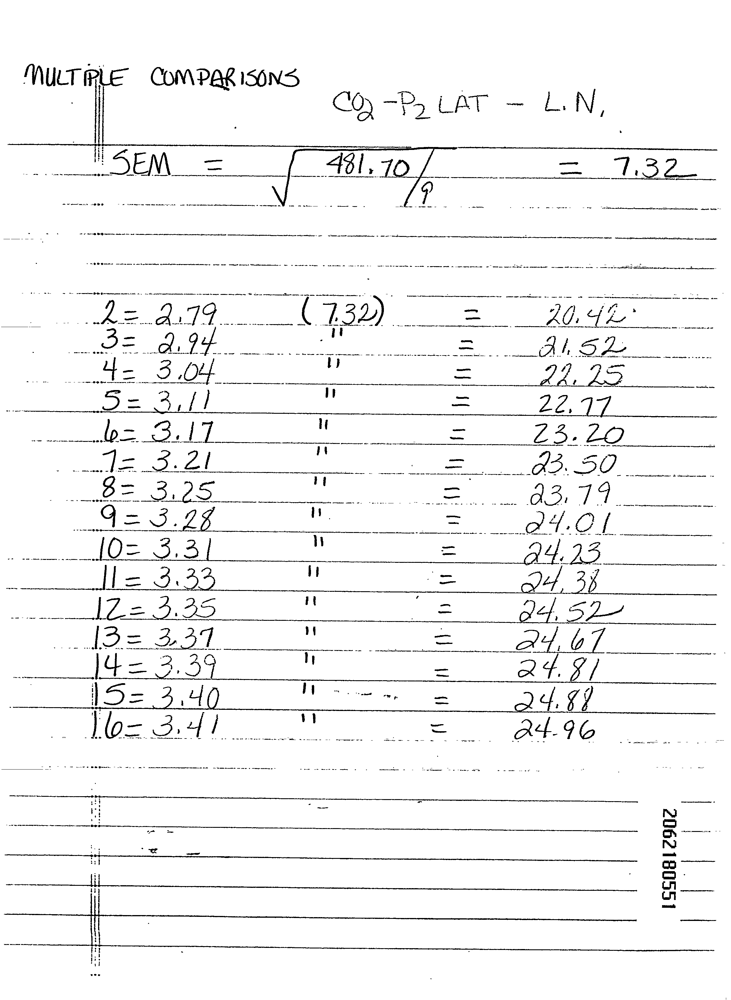 MULTIPLE COMPARISONS
CO2 - P2 LAT - L.N.
SEM = √ 481.70/9 = 7.32
2 = 2.79 (7.32) = 20.42
3 = 2.94 " = 21.52
4 = 3.04 " = 22.25
5 = 3.11 " = 22.77
6 = 3.17 " = 23.20
7 = 3.21 " = 23.50
8 = 3.25 " = 23.79
9 = 3.28 " = 24.01
10 = 3.31 " = 24.23
11 = 3.33 " = 24.38
12 = 3.35 " = 24.52
13 = 3.37 " = 24.67
14 = 3.39 " = 24.81
15 = 3.40 " = 24.88
16 = 3.41 " = 24.96
2062180551